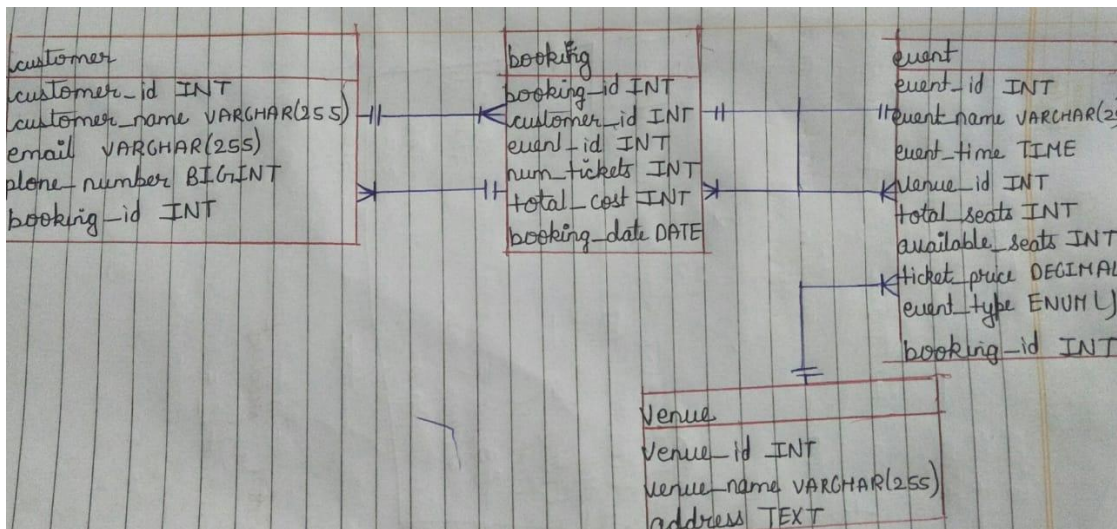 customer
customer_id INT
customer_name VARCHAR(255)
email VARCHAR(255)
phone_number BIGINT
booking_id INT
booking
booking_id INT
customer_id INT
event_id INT
num_tickets INT
total_cost INT
booking_date DATE
event
event_id INT
event_name VARCHAR(2
event_time TIME
venue_id INT
total_seats INT
available_seats INT
ticket_price DECIMAL
event_type ENUM()
booking_id INT
Venue
venue_id INT
venue_name VARCHAR(255)
address TEXT